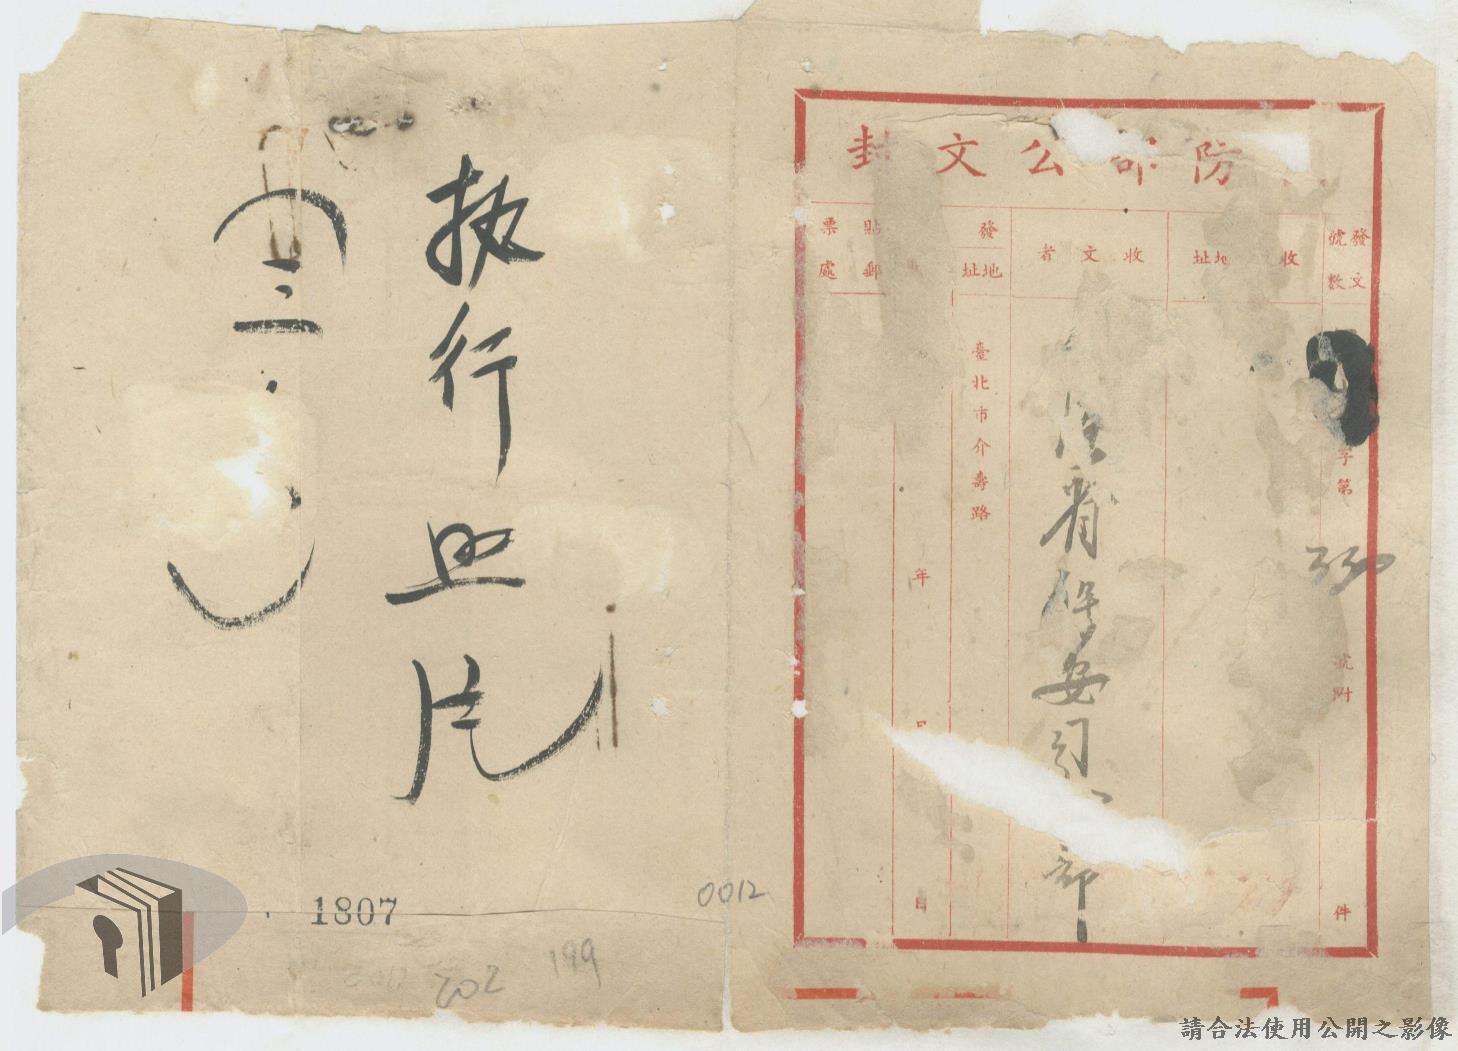 防部公文封
發文號數
字第
號附
件
收
地址
收文者
省保安司
部
發
地址
臺北市介壽路
年
日
貼郵票處
執行照片
(二.)
1807
0012
202
199
請合法使用公開之影像